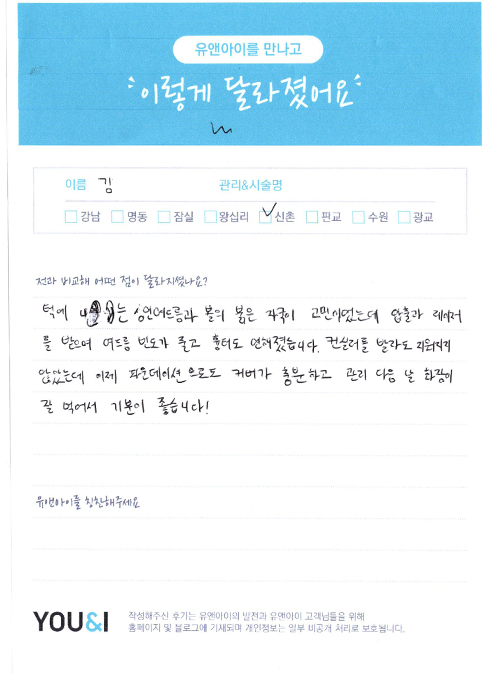 유앤아이를 만나고
이렇게 달라졌어요
이름 김 관리&시술명
강남 명동 잠실 왕십리 신촌 판교 수원 광교
전과 비교해 어떤 점이 달라지셨나요?
턱에 나는 성인여드름과 볼의 붉은 자국이 고민이었는데 압출과 레이저
를 받으며 여드름 빈도가 줄고 흉터도 연해졌습니다. 컨실러를 발라도 지워지지
않았는데 이제 파운데이션으로도 커버가 충분하고 관리 다음 날 화장이
잘 먹어서 기분이 좋습니다!
유앤아이를 칭찬해주세요
YOU&I
작성해주신 후기는 유앤아이의 발전과 유앤아이 고객님들을 위해
홈페이지 및 블로그에 기재되며 개인정보는 일부 비공개 처리로 보호됩니다.